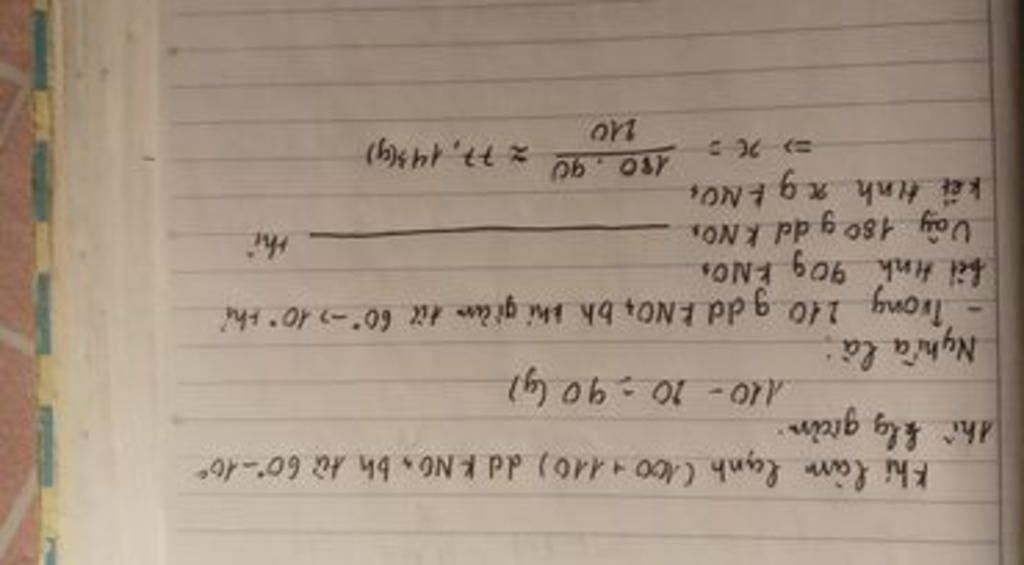 Khi làm lạnh (100 + 110) dd KNO₃ bh từ 60° - 10°
thì klg giảm.
110 - 20 = 90 (g)
Nghĩa là:
- Trong 210 g dd KNO₃ bh khi giảm từ 60° -> 10° thì
kết tinh 90g KNO₃
Vậy 180 g dd KNO₃ ——— thì
kết tinh x g KNO₃
=> x = 180 . 90 / 210 ≈ 77,143(g)